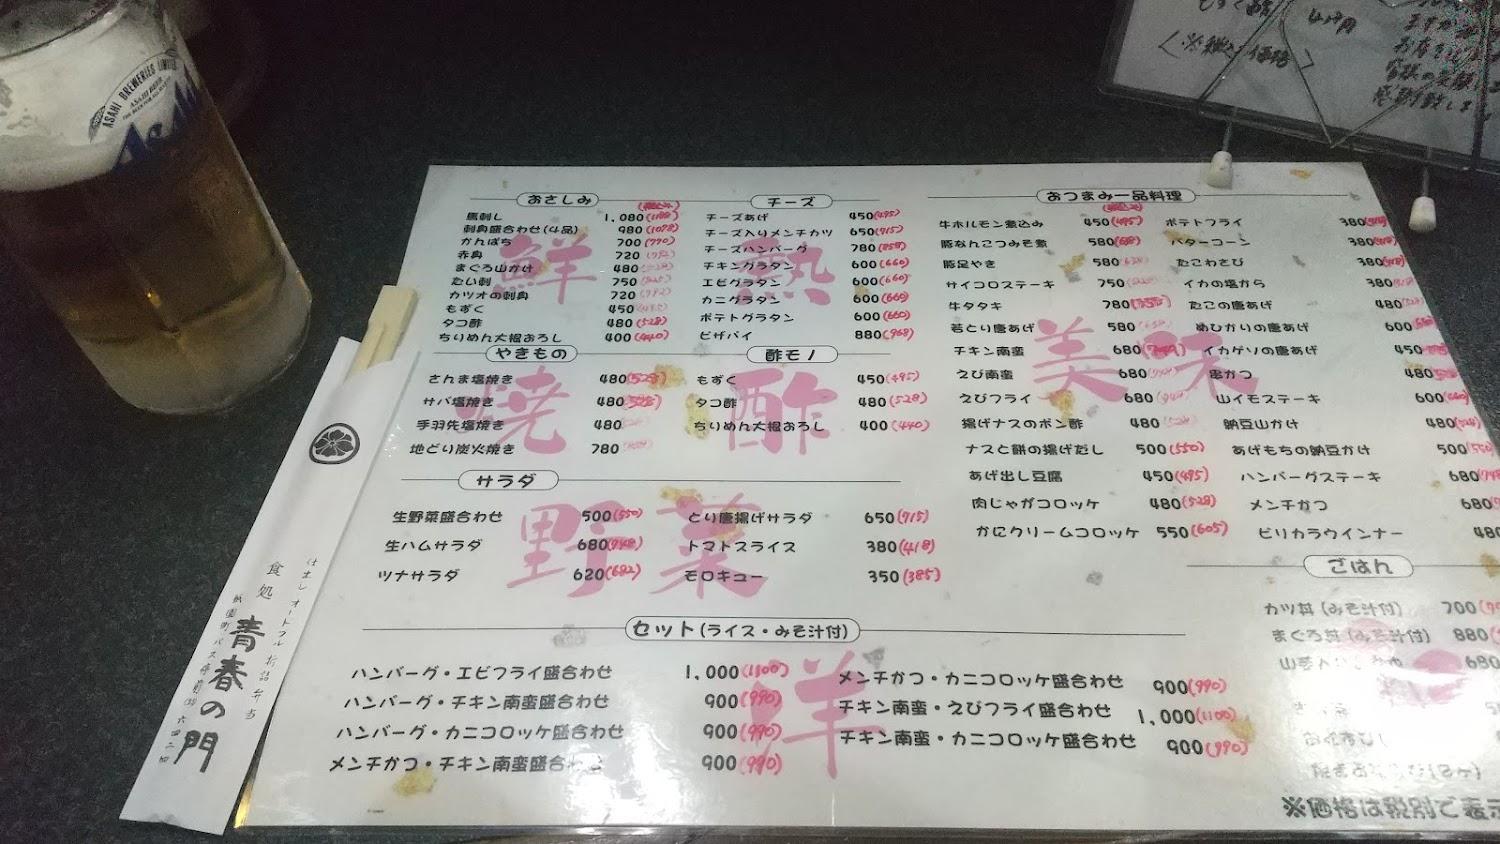 ASAHI BREWERIES LIMITED
Asahi
<※税込価格>
おさしみ
馬刺し 1,080 (1188)
刺身盛合わせ(4品) 980 (1078)
かんぱち 700 (770)
赤身 720 (792)
まぐろ山かけ 480 (528)
たい刺 750 (825)
カツオの刺身 720 (792)
もずく 450
タコ酢 480 (528)
ちりめん大根おろし 400 (440)
鮮
チーズ
チーズあげ 450 (495)
チーズ入りメンチカツ 650 (715)
チーズハンバーグ 780 (858)
チキングラタン 600 (660)
エビグラタン 600 (660)
カニグラタン 600 (660)
ポテトグラタン 600 (660)
ピザパイ 880 (968)
熱
やきもの
さんま塩焼き 480 (528)
サバ塩焼き 480 (528)
手羽先塩焼き 480
地どり炭火焼き 780
焼
酢モノ
もずく 450 (495)
タコ酢 480 (528)
ちりめん大根おろし 400 (440)
酢
サラダ
生野菜盛合わせ 500 (550)
生ハムサラダ 680 (748)
ツナサラダ 620 (682)
とり唐揚げサラダ 650 (715)
トマトスライス 380 (418)
モロキュー 350 (385)
野菜
おつまみ一品料理
牛ホルモン煮込み 450 (495)
豚なんこつみそ煮 580 (638)
豚足やき 580
サイコロステーキ 750
牛タタキ 780
若とり唐あげ 580
チキン南蛮 680
えび南蛮 680
えびフライ 680
揚げナスのポン酢 480
ナスと餅の揚げだし 500 (550)
あげ出し豆腐 450 (495)
肉じゃがコロッケ 480 (528)
かにクリームコロッケ 550 (605)
ポテトフライ 380
バターコーン 380
たこわさび 380
イカの塩から 380
たこの唐あげ 480
めひかりの唐あげ 600
イカゲソの唐あげ 450
串かつ 480
山イモステーキ 600
納豆山かけ 480
あげもちの納豆かけ 500
ハンバーグステーキ 680
メンチかつ 680
ピリカラウインナー 480
美味
ごはん
カツ丼(みそ汁付) 700
まぐろ丼(みそ汁付) 880
680
セット(ライス・みそ汁付)
ハンバーグ・エビフライ盛合わせ 1,000 (1100)
ハンバーグ・チキン南蛮盛合わせ 900 (990)
ハンバーグ・カニコロッケ盛合わせ 900 (990)
メンチかつ・チキン南蛮盛合わせ 900 (990)
メンチかつ・カニコロッケ盛合わせ 900 (990)
チキン南蛮・えびフライ盛合わせ 1,000 (1100)
チキン南蛮・カニコロッケ盛合わせ 900 (990)
洋
※価格は税別で表示
仕出し オードブル 折詰弁当
食処 青春の門